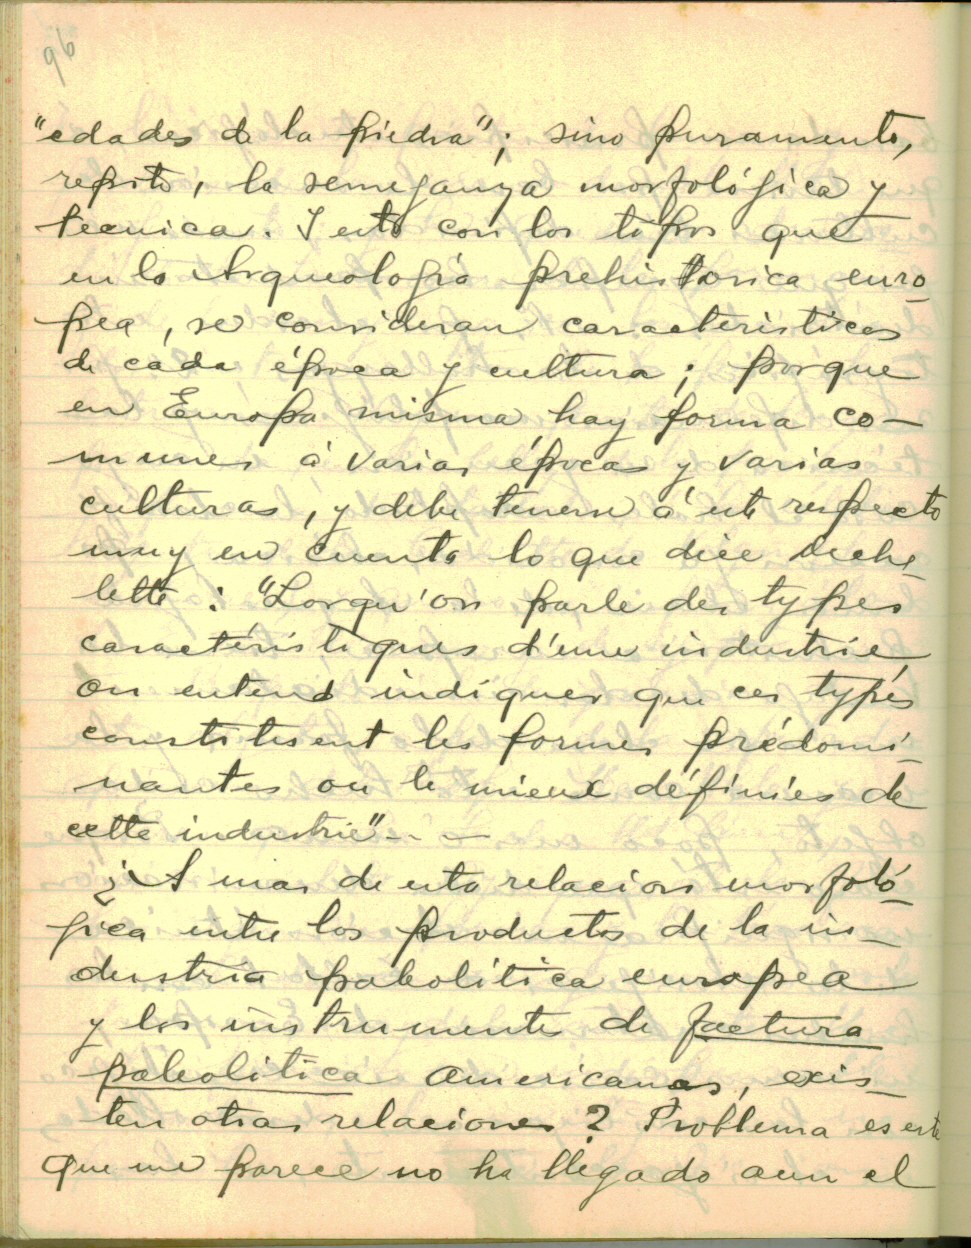 96
"edades de la piedra"; sino puramente,
repito, la semejanza morfológica y
tecnica. Y esto con los tipos que
en la Arqueología prehistorica euro-
pea, se consideran caracteristicos
de cada época y cultura; porque
en Europa misma hay forma co-
munes á varias épocas y varias
culturas, y debe tenerse á este respecto
muy en cuenta lo que dice Deche-
lette: "Lorqu'on parle des types
caractéristiques d'une industrie
on entend indiquer que ces types
constituent les formes prédomi-
nantes ou le mieux définies de
cette industrie" - - -
¿A mas de esta relacion morfoló-
gica entre los productos de la in-
dustria paleolitica europea
y los instrumentos de factura
paleolitica americanas, exis-
ten otras relaciones? Problema es este
que me parece no ha llegado aun el